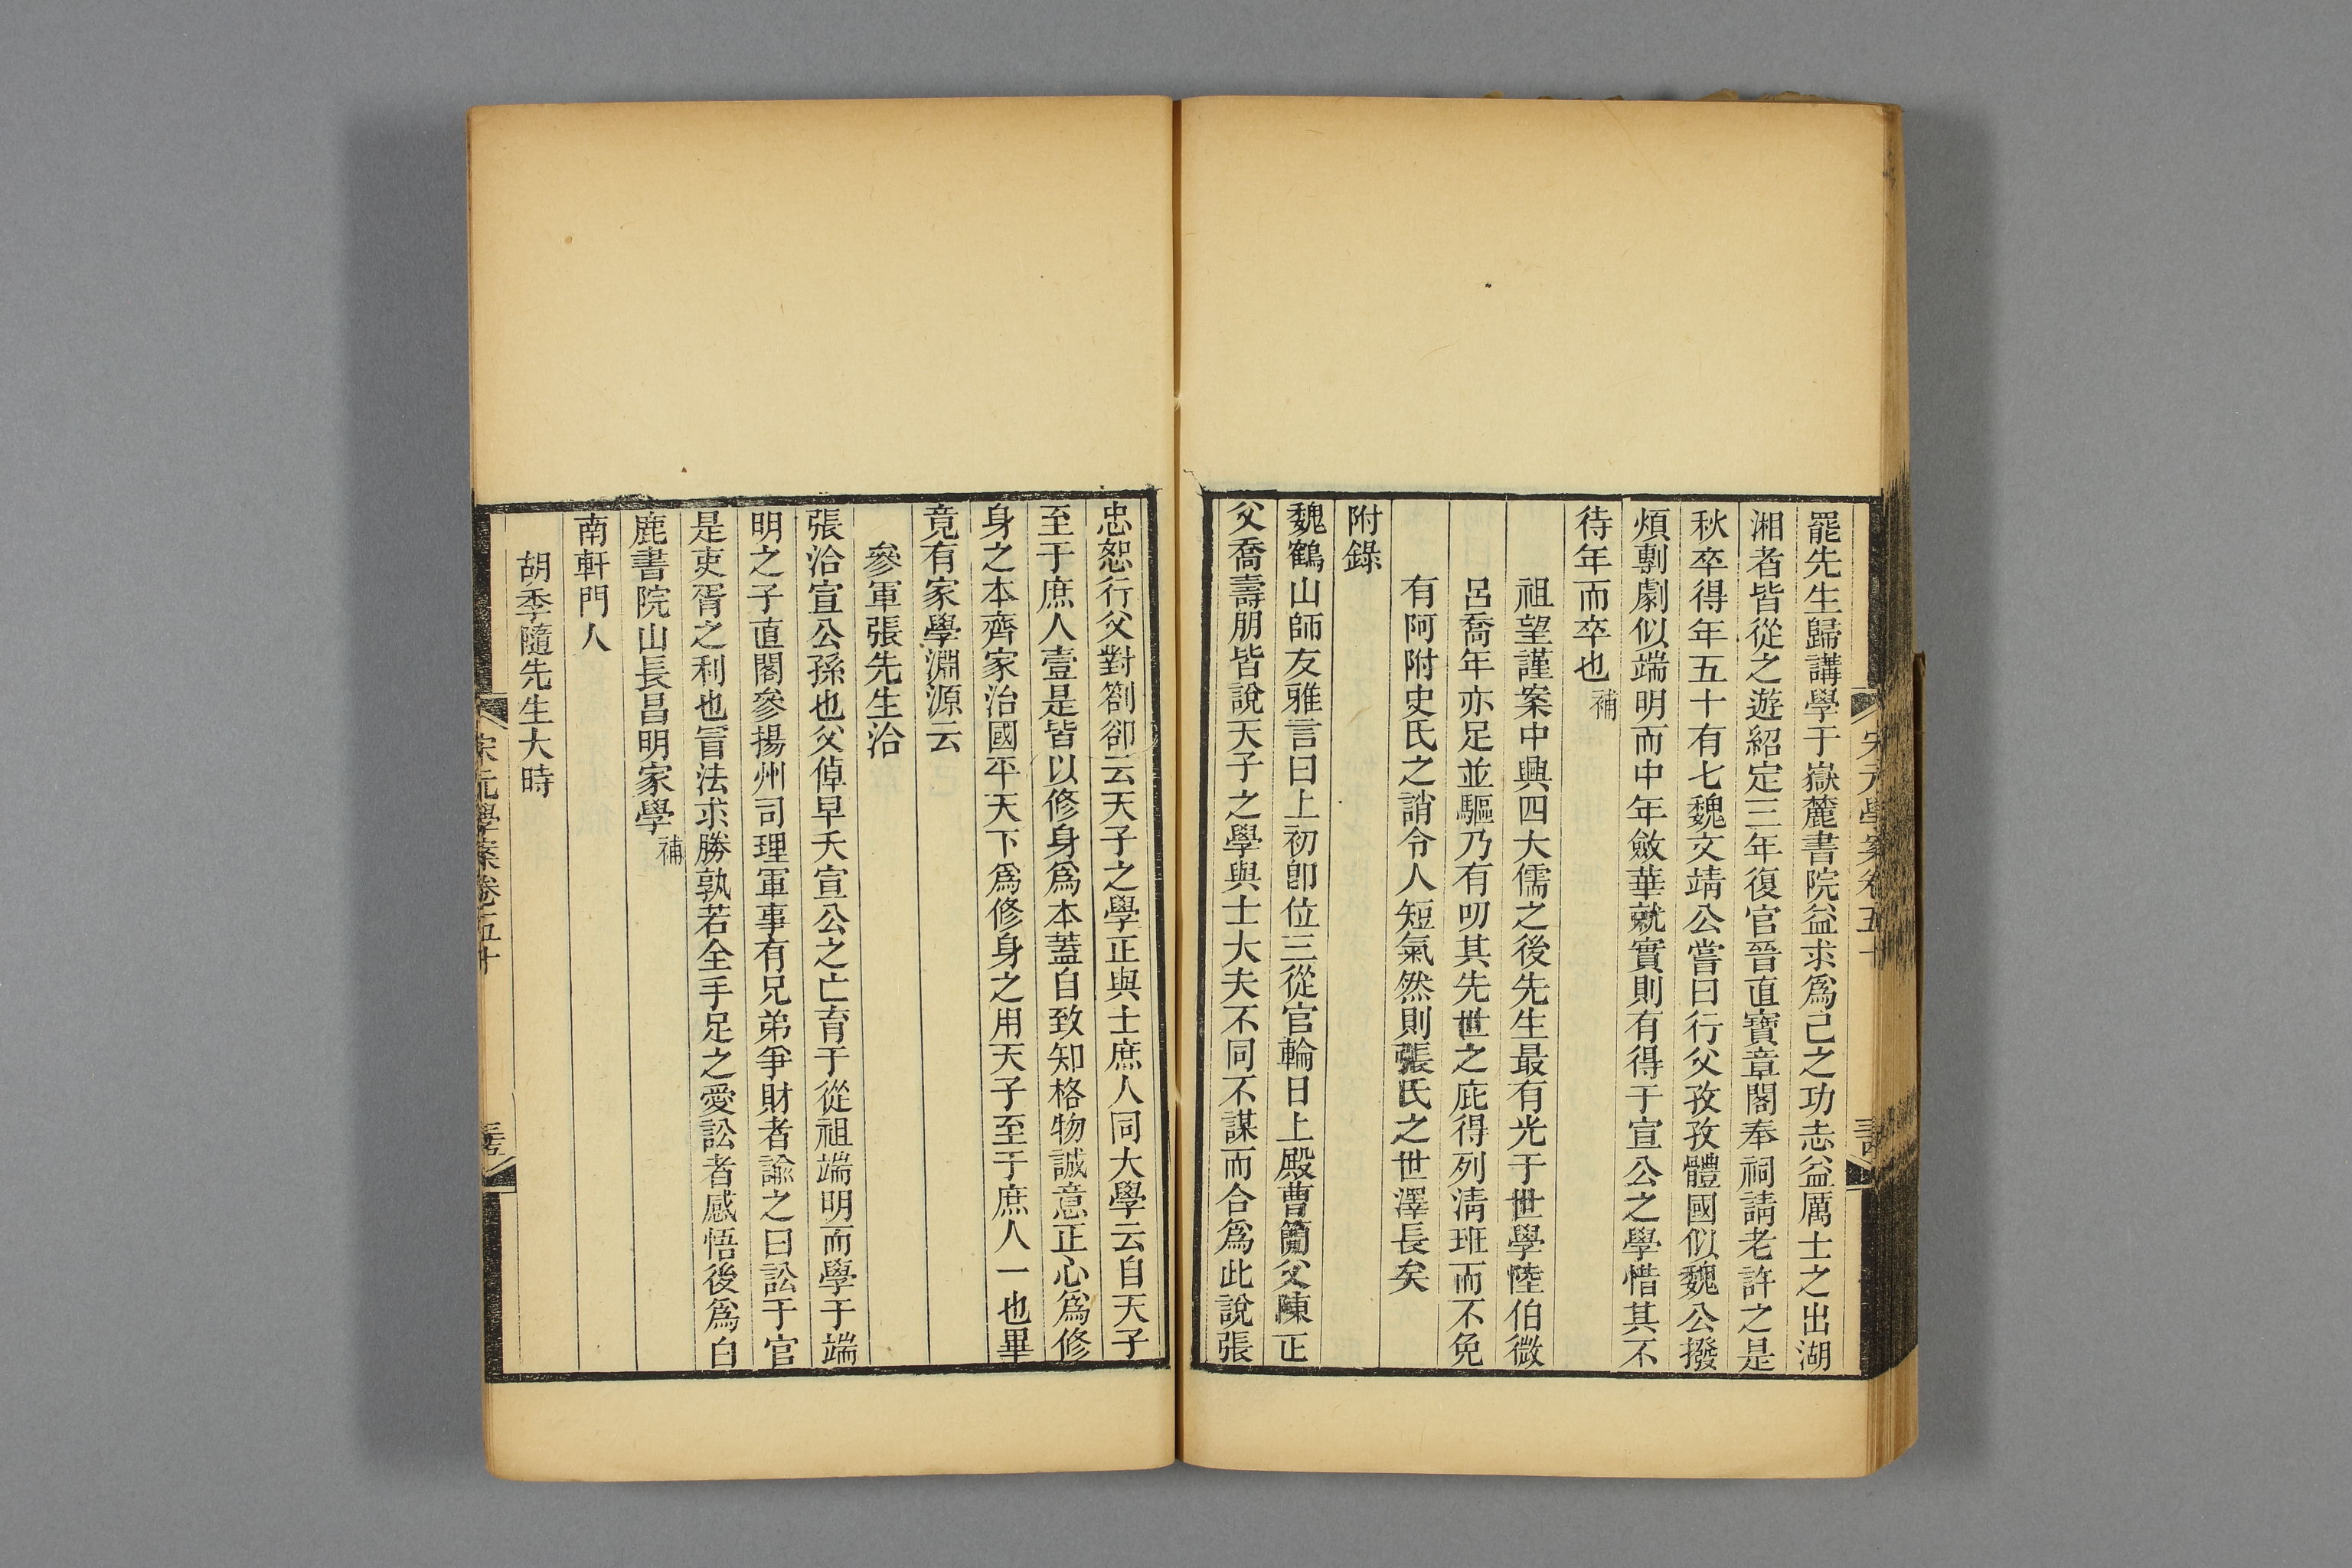 宋元學案卷五十
罷先生歸講學于嶽麓書院益求爲己之功志益厲士之出湖
湘者皆從之遊紹定三年復官晉直寶章閣奉祠請老許之是
秋卒得年五十有七魏文靖公嘗曰行父孜孜體國似魏公撥
煩剸劇似端明而中年斂華就實則有得于宣公之學惜其不
待年而卒也補
祖望謹案中興四大儒之後先生最有光于世學陸伯微
呂喬年亦足並驅乃有叨其先世之庇得列淸班而不免
有阿附史氏之誚令人短氣然則張氏之世澤長矣
附錄
魏鶴山師友雅言曰上初卽位三從官輪日上殿曹簡父陳正
父喬壽朋皆說天子之學與士大夫不同不謀而合爲此說張
忠恕行父對劄卻云天子之學正與士庶人同大學云自天子
至于庶人壹是皆以修身爲本蓋自致知格物誠意正心爲修
身之本齊家治國平天下爲修身之用天子至于庶人一也畢
竟有家學淵源云
參軍張先生洽
張洽宣公孫也父倬早夭宣公之亡育于從祖端明而學于端
明之子直閣參揚州司理軍事有兄弟爭財者諭之曰訟于官
是吏胥之利也冒法求勝孰若全手足之愛訟者感悟後爲白
鹿書院山長昌明家學補
南軒門人
胡季隨先生大時
宋元學案卷五十